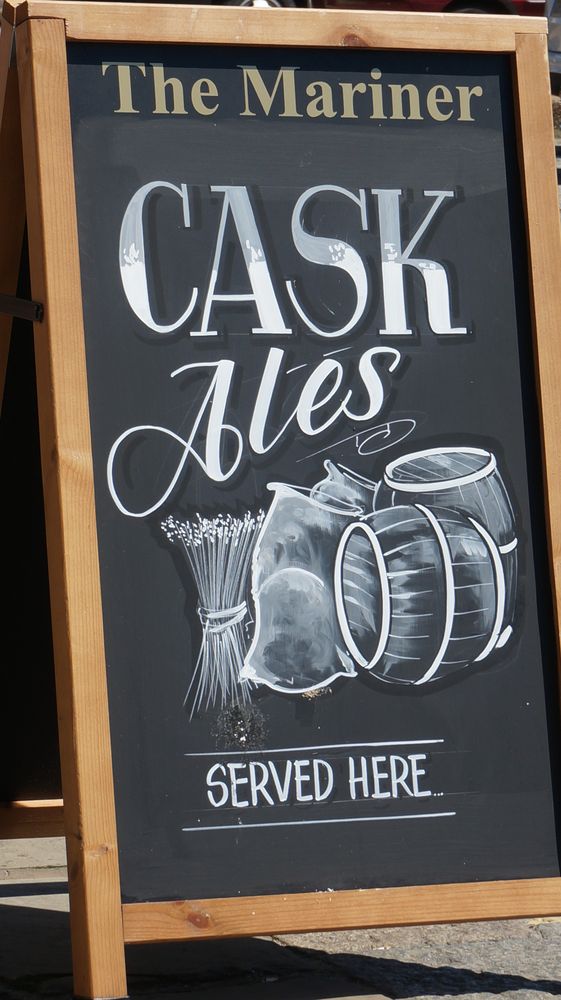 The Mariner
CASK
Ales
SERVED HERE...